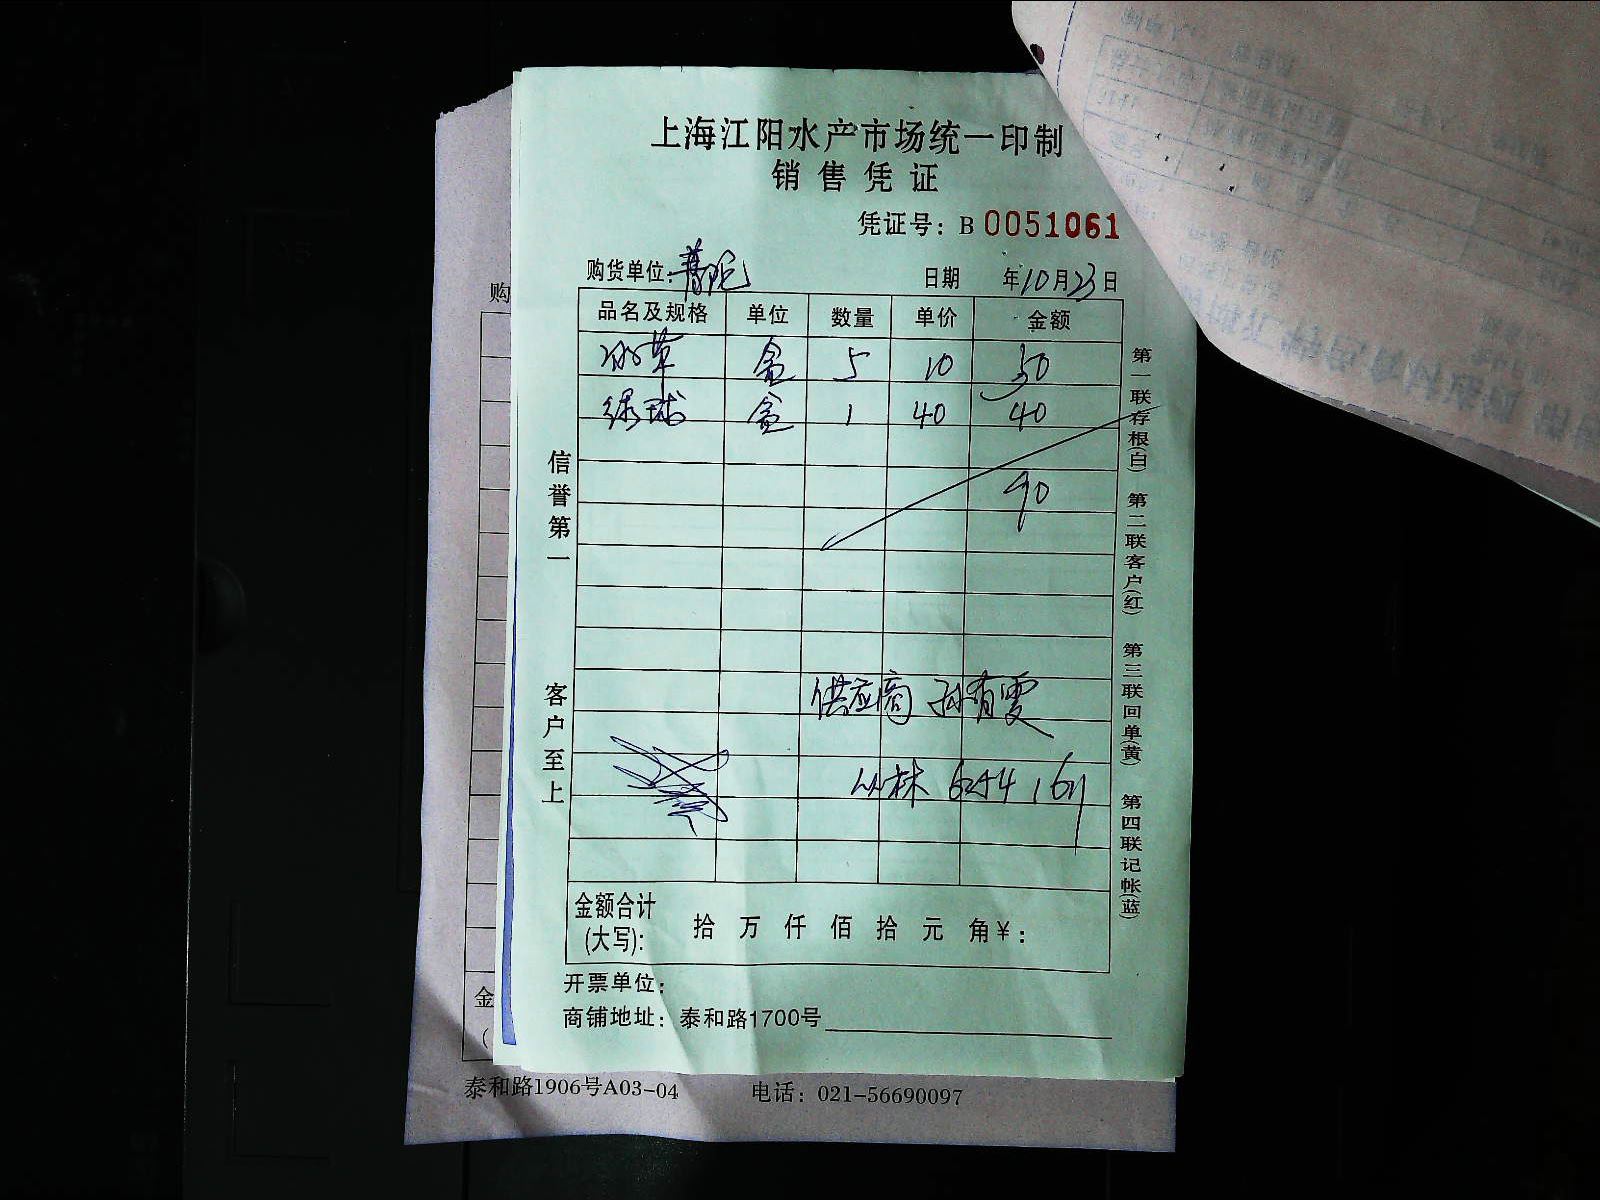 上海江阳水产市场统一印制
销售凭证
凭证号：B 0051061
购货单位：普陀 日期 年10月23日
品名及规格 单位 数量 单价 金额
冰草 盒 5 10 50
绿球 盒 1 40 40
90
供应商 孙有雯
丛林
金额合计(大写)： 拾 万 仟 佰 拾 元 角￥：
开票单位：
商铺地址：泰和路1700号
信誉第一 客户至上
第一联存根(白) 第二联客户(红) 第三联回单(黄) 第四联记帐(蓝)
购
金
泰和路1906号A03-04 电话：021-56690097